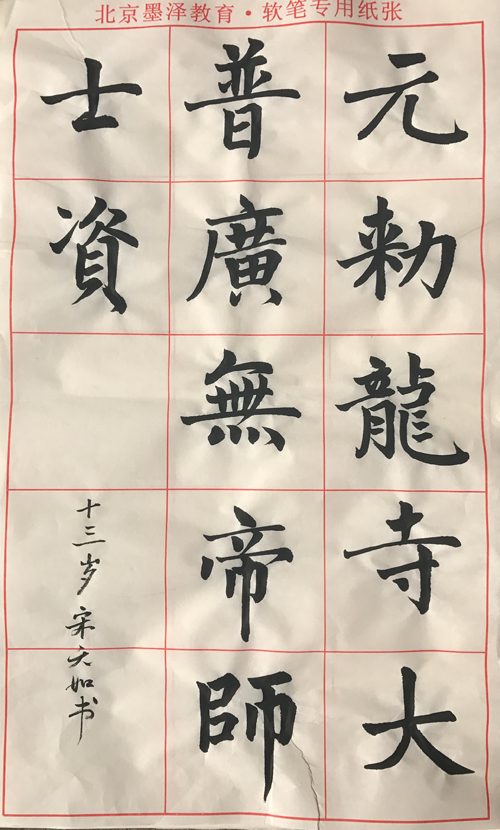 北京墨泽教育·软笔专用纸张
元勑龍寺大
普廣無帝師
士資
十三岁 宋天如书